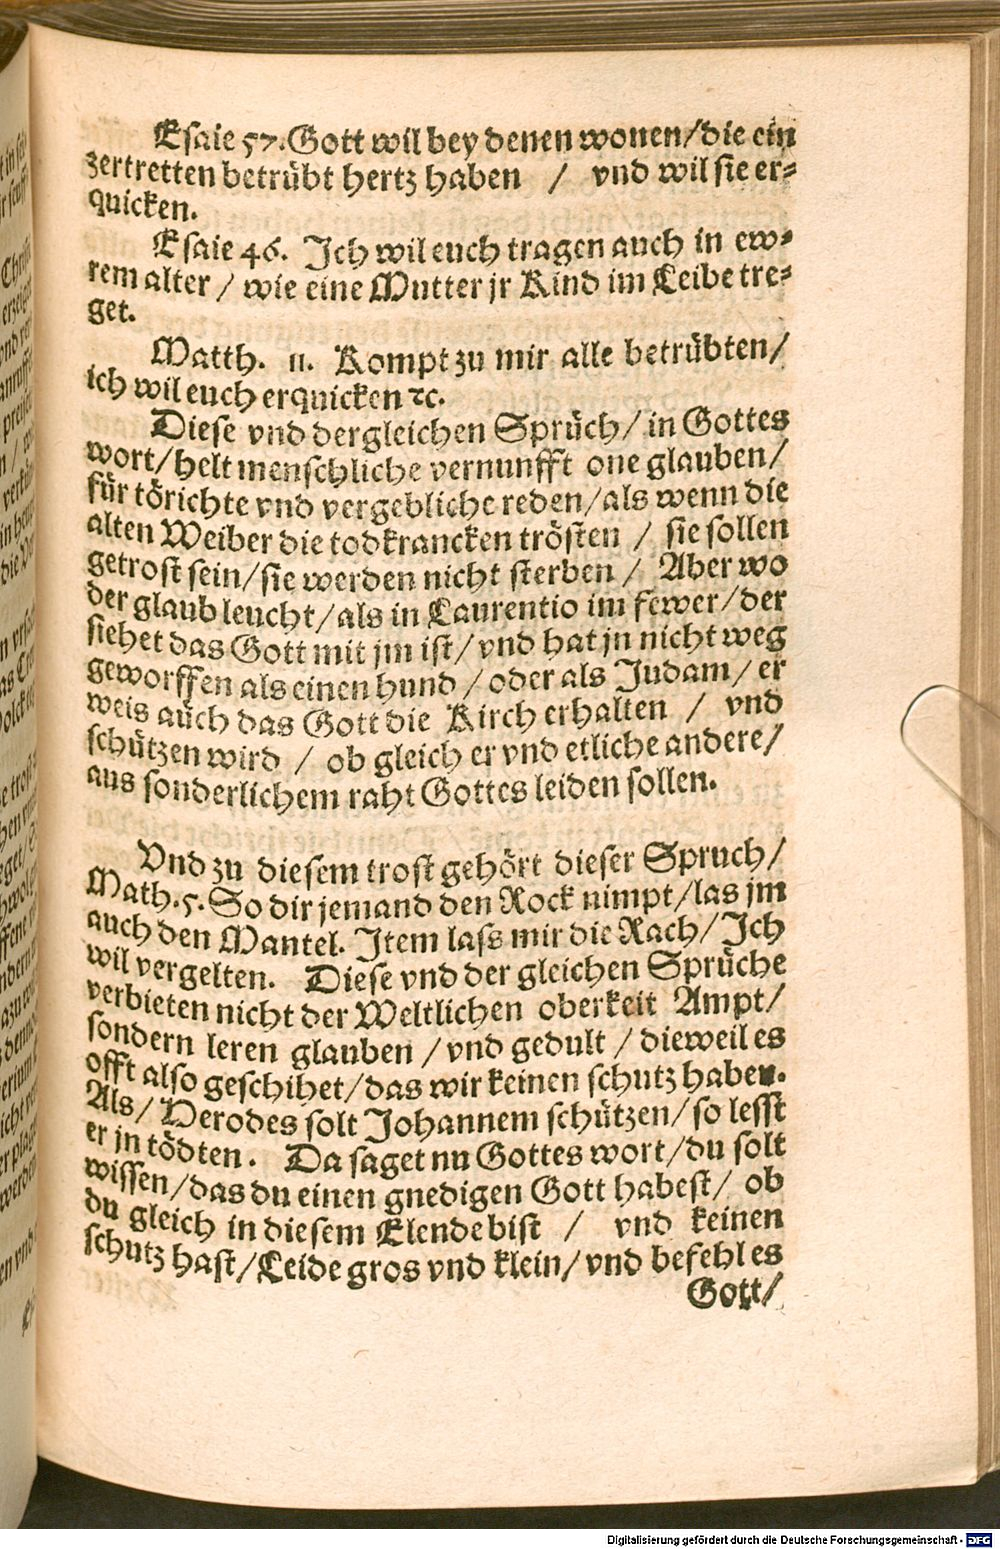 Esaie 57. Gott wil bey denen wonen/die ein
zertretten betrübt hertz haben / vnd wil sie er=
quicken.
Esaie 46. Ich wil euch tragen auch in ew=
rem alter / wie eine Mutter jr Kind im Leibe tre=
get.
Matth. 11. Kompt zu mir alle betrübten/
ich wil euch erquicken ꝛc.
Diese vnd dergleichen Sprüch/ in Gottes
wort/helt menschliche vernunfft one glauben/
für törichte vnd vergebliche reden/als wenn die
alten Weiber die todkrancken trösten / sie sollen
getrost sein/sie werden nicht sterben / Aber wo
der glaub leucht/als in Laurentio im fewer/der
siehet das Gott mit jm ist/vnd hat jn nicht weg
geworffen als einen hund /oder als Judam/ er
weis auch das Gott die Kirch erhalten / vnd
schützen wird / ob gleich er vnd etliche andere/
aus sonderlichem raht Gottes leiden sollen.
Vnd zu diesem trost gehört dieser Spruch/
Math. 5. So dir jemand den Rock nimpt/las jm
auch den Mantel. Item lass mir die Rach/Ich
wil vergelten. Diese vnd der gleichen Sprüche
verbieten nicht der Weltlichen oberkeit Ampt/
sondern leren glauben /vnd gedult / dieweil es
offt also geschihet/das wir keinen schutz haben.
Als/ Herodes solt Johannem schützen/so lesst
er jn tödten. Da saget nu Gottes wort/du solt
wissen/das du einen gnedigen Gott habest/ ob
du gleich in diesem Elende bist / vnd keinen
schutz hast/Leide gros vnd klein/vnd befehl es
Gott/
Digitalisierung gefördert durch die Deutsche Forschungsgemeinschaft - DFG